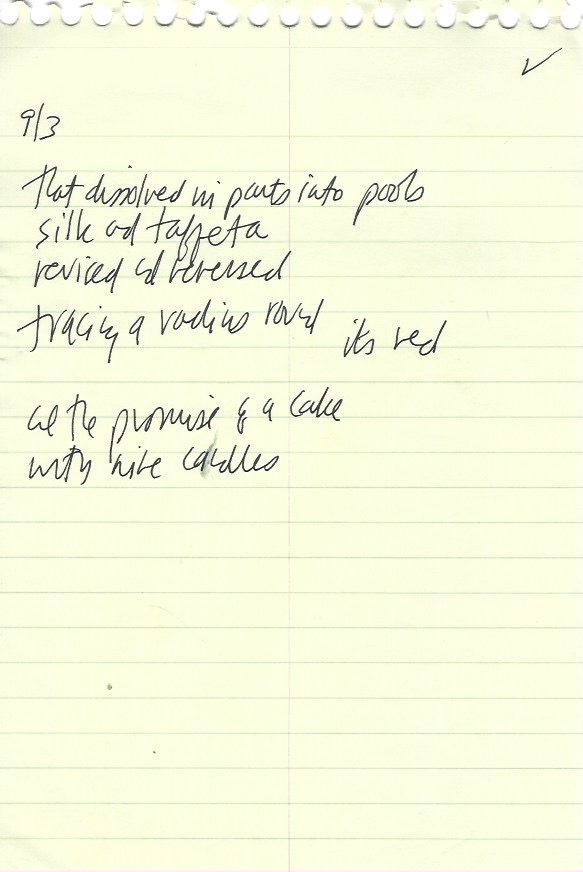 9/3
that dissolved in parts into pools
silk and taffeta
revised and reversed
tracing a radius round its red
the promise of a cake
with nine candles